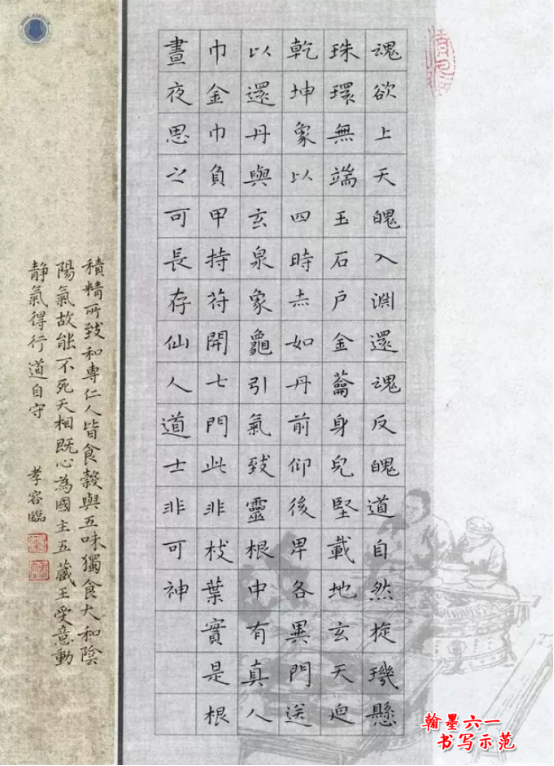 魂欲上天魄入淵還魂反魄道自然旋璣懸
珠環無端玉石戶金籥身完堅載地玄天迫
乾坤象以四時赤如丹前仰後卑各異門送
以還丹與玄泉象龜引氣致靈根中有真人
巾金巾負甲持符開七門此非枝葉實是根
晝夜思之可長存仙人道士非可神
積精所致和專仁人皆食穀與五味獨食大和陰
陽氣故能不死天相既心為國主五藏王受意動
静氣得行道自守
孝容臨
翰墨六一
书写示范